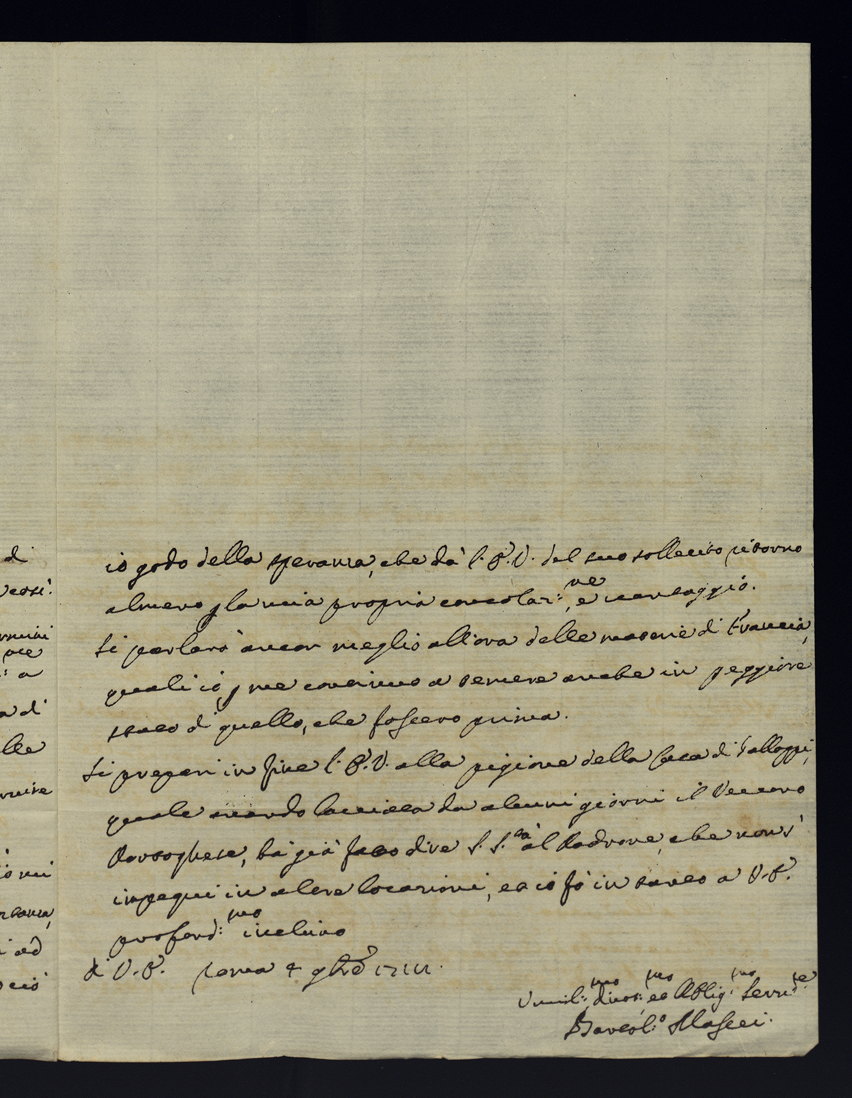 di
io godo della speranza, che dà l'E.V. del suo sollecito ritorno
almeno p la mia propria consolaz:ne, e vantaggio.
Si parlarà ancor meglio all'ora delle materie di Francia,
quali io p me continuo a temere anche in peggiore
stato di quello, che fossero prima.
Si prepari in fine l'E.V. alla pigione della Casa di
quale havendo lasciata da alcuni giorni il Vescovo
hà già fatto dire S.S.tà al Padrone, che non s'
impegni in altre locazioni, et io fò in tanto a V.E.
profond:mo inchino
di V.E. Roma 4 9bre
Umil:mo divot:mo et Oblig:mo Serv:re
Bartol:o Massei